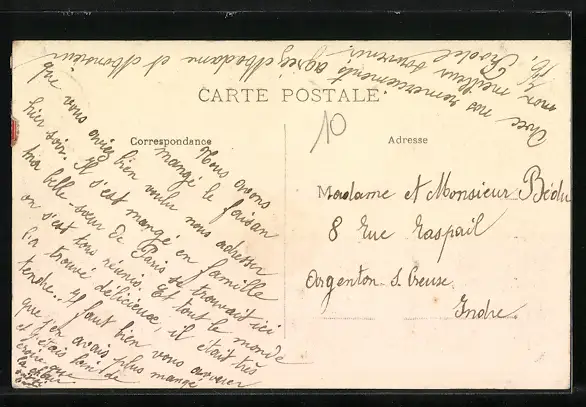 CARTE POSTALE
Correspondance
Adresse
10
Madame et Monsieur Bédu
8 Rue Raspail
Argenton s. Creuse
Indre
Nous avons
mangé le faisan
que vous aviez bien voulu nous adresser
hier soir. Il s'est mangé en famille
ma belle-sœur de Paris se trouvait ici
on s'est tous réunis. Et tout le monde
l'a trouvé délicieux, il était très
tendre. Il faut bien vous avouer
que j'en avais plus mangé
et j'étais loin de
croire que
la chair
Avec nos remerciements, agréez Madame et Monsieur
mon meilleur souvenir.